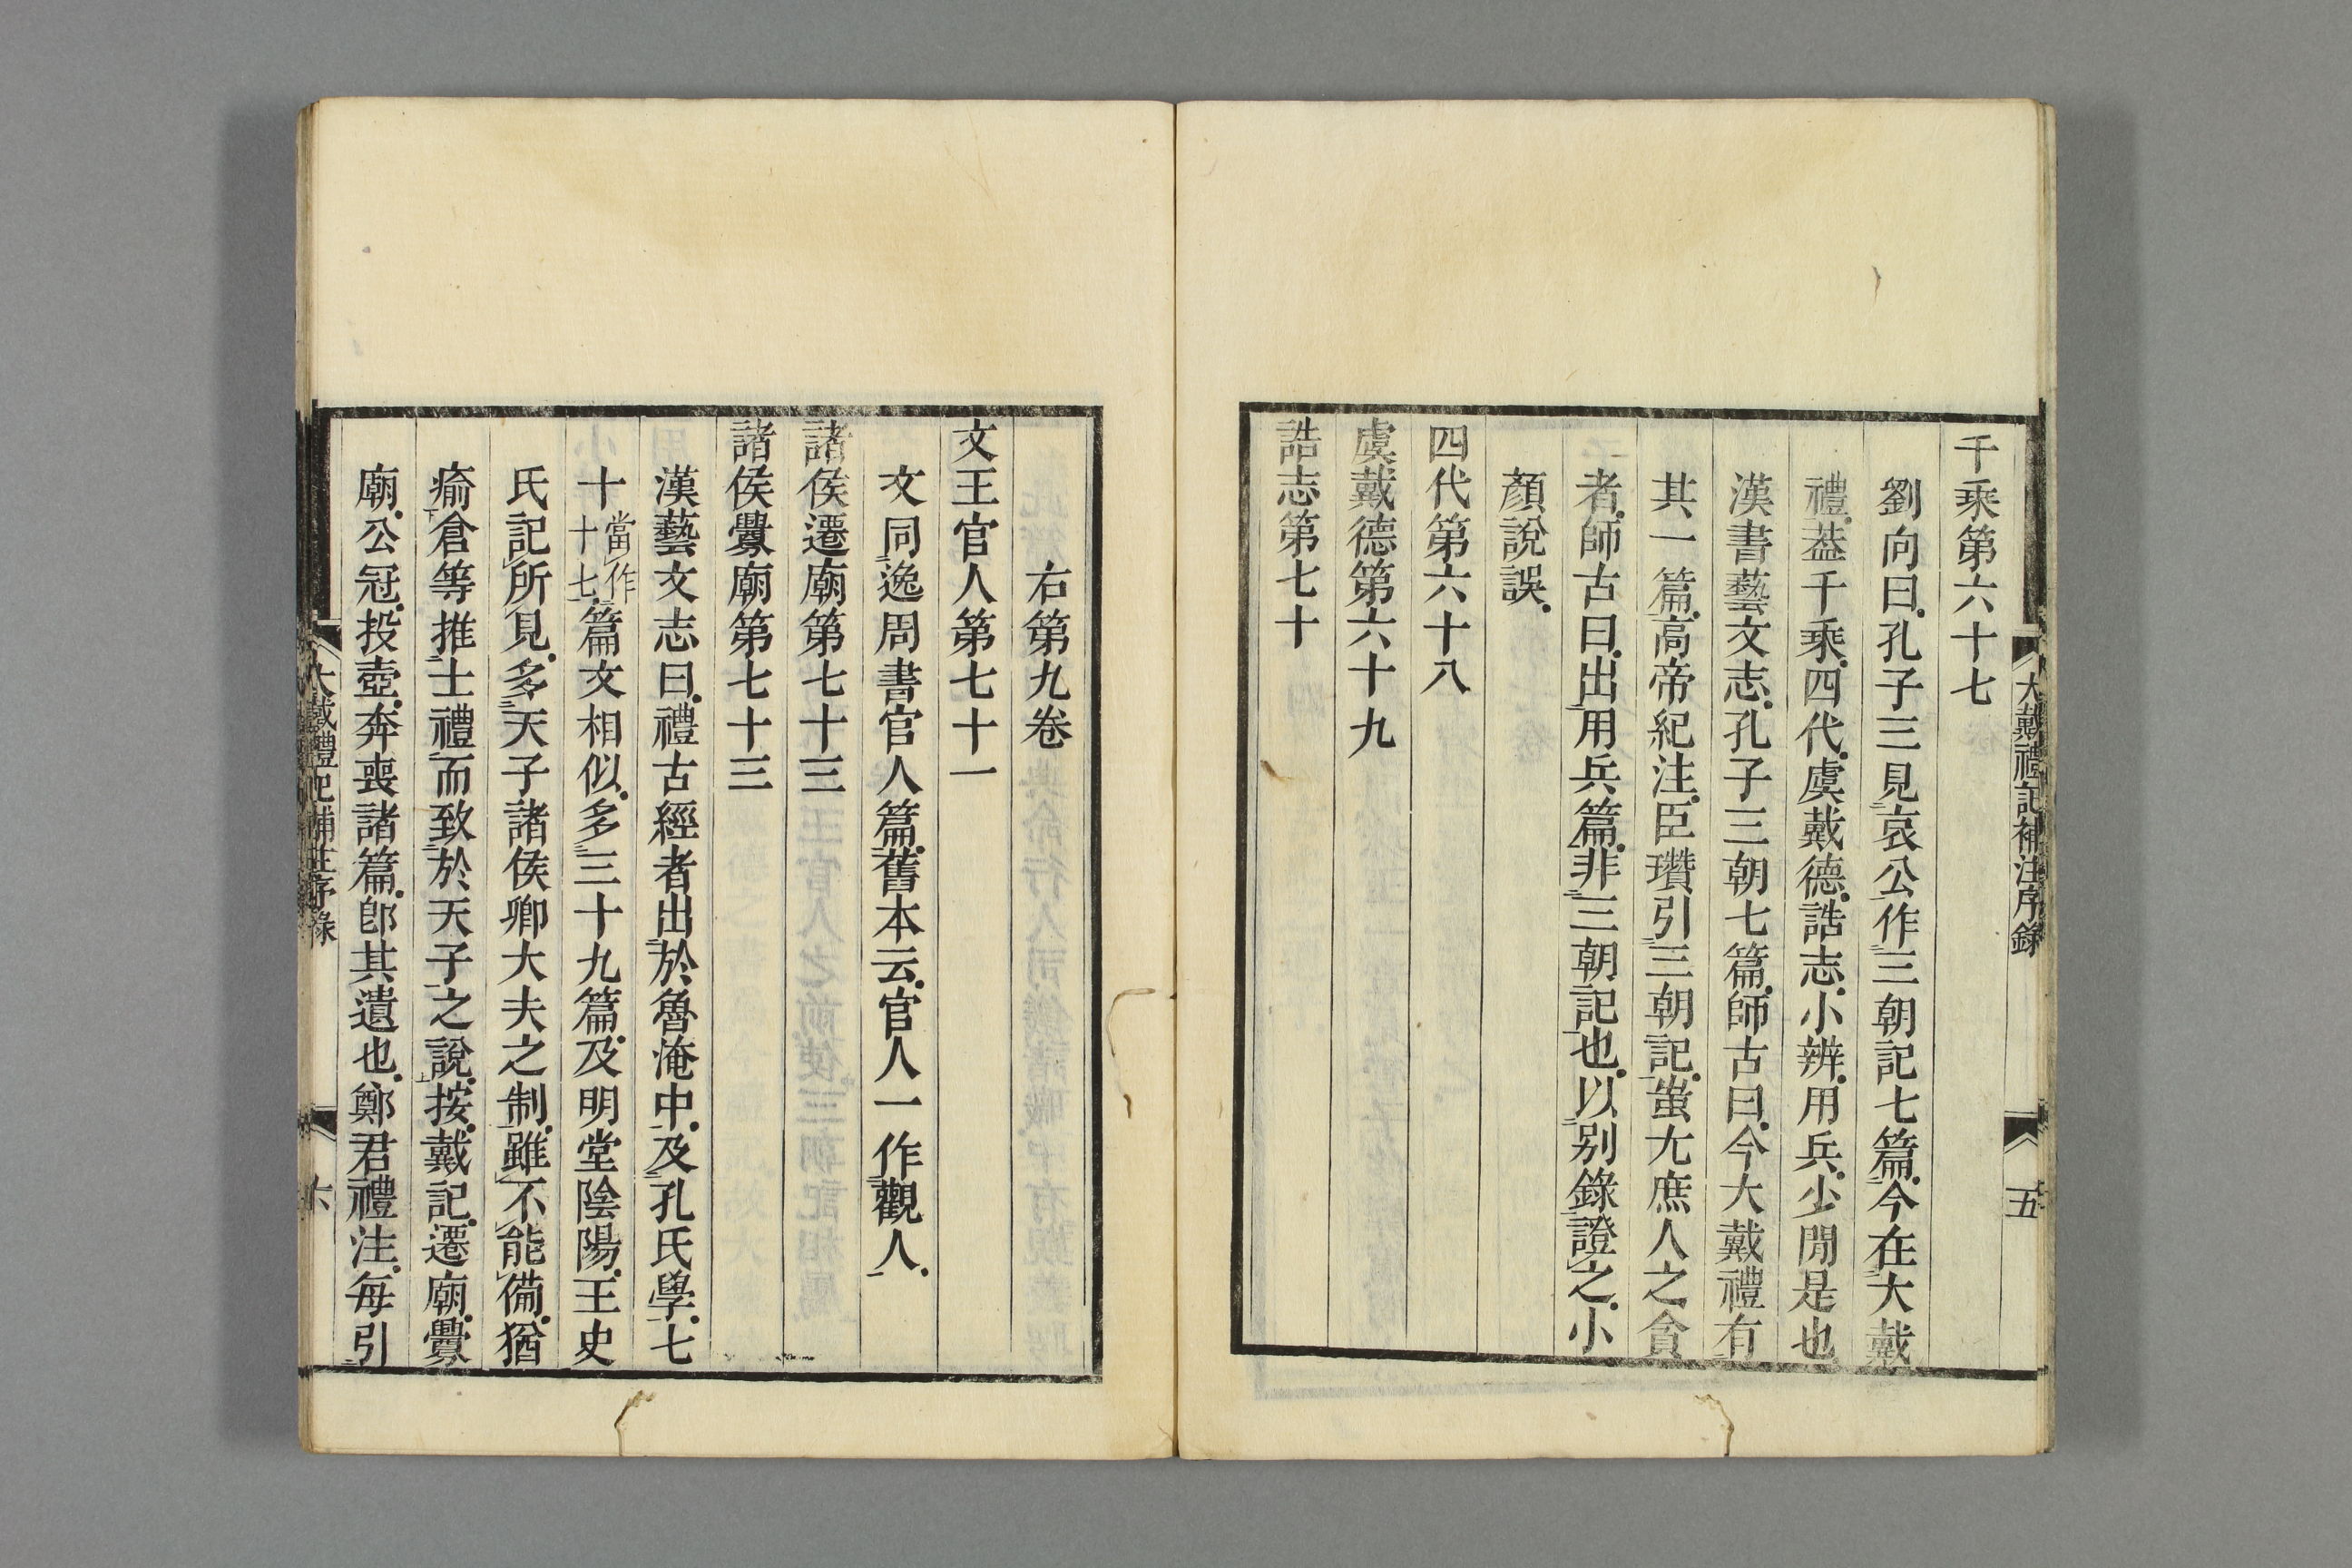 大戴禮記補注序錄
五
千乘第六十七
劉向曰.孔子三見哀公作三朝記七篇.今在大戴
禮.葢千乘.四代.虞戴德.誥志.小辨.用兵.少閒是也.
漢書藝文志.孔子三朝七篇.師古曰.今大戴禮有
其一篇.高帝紀注.臣瓚引三朝記.蚩尤庶人之貪
者.師古曰.出用兵篇.非三朝記也.以別錄證之.小
顏說誤.
四代第六十八
虞戴德第六十九
誥志第七十
右第九卷
文王官人第七十一
文同逸周書官人篇.舊本云.官人一作觀人.
諸侯遷廟第七十三
諸侯釁廟第七十三
漢藝文志曰.禮古經者出於魯淹中.及孔氏學.七
十當作十七.篇文相似.多三十九篇.及明堂陰陽.王史
氏記所見.多天子諸侯卿大夫之制.雖不能備.猶
瘉倉等推士禮而致於天子之說.按.戴記.遷廟.釁
廟.公冠.投壺.奔喪諸篇.卽其遺也.鄭君禮注.每引
大戴禮記補注序錄
六